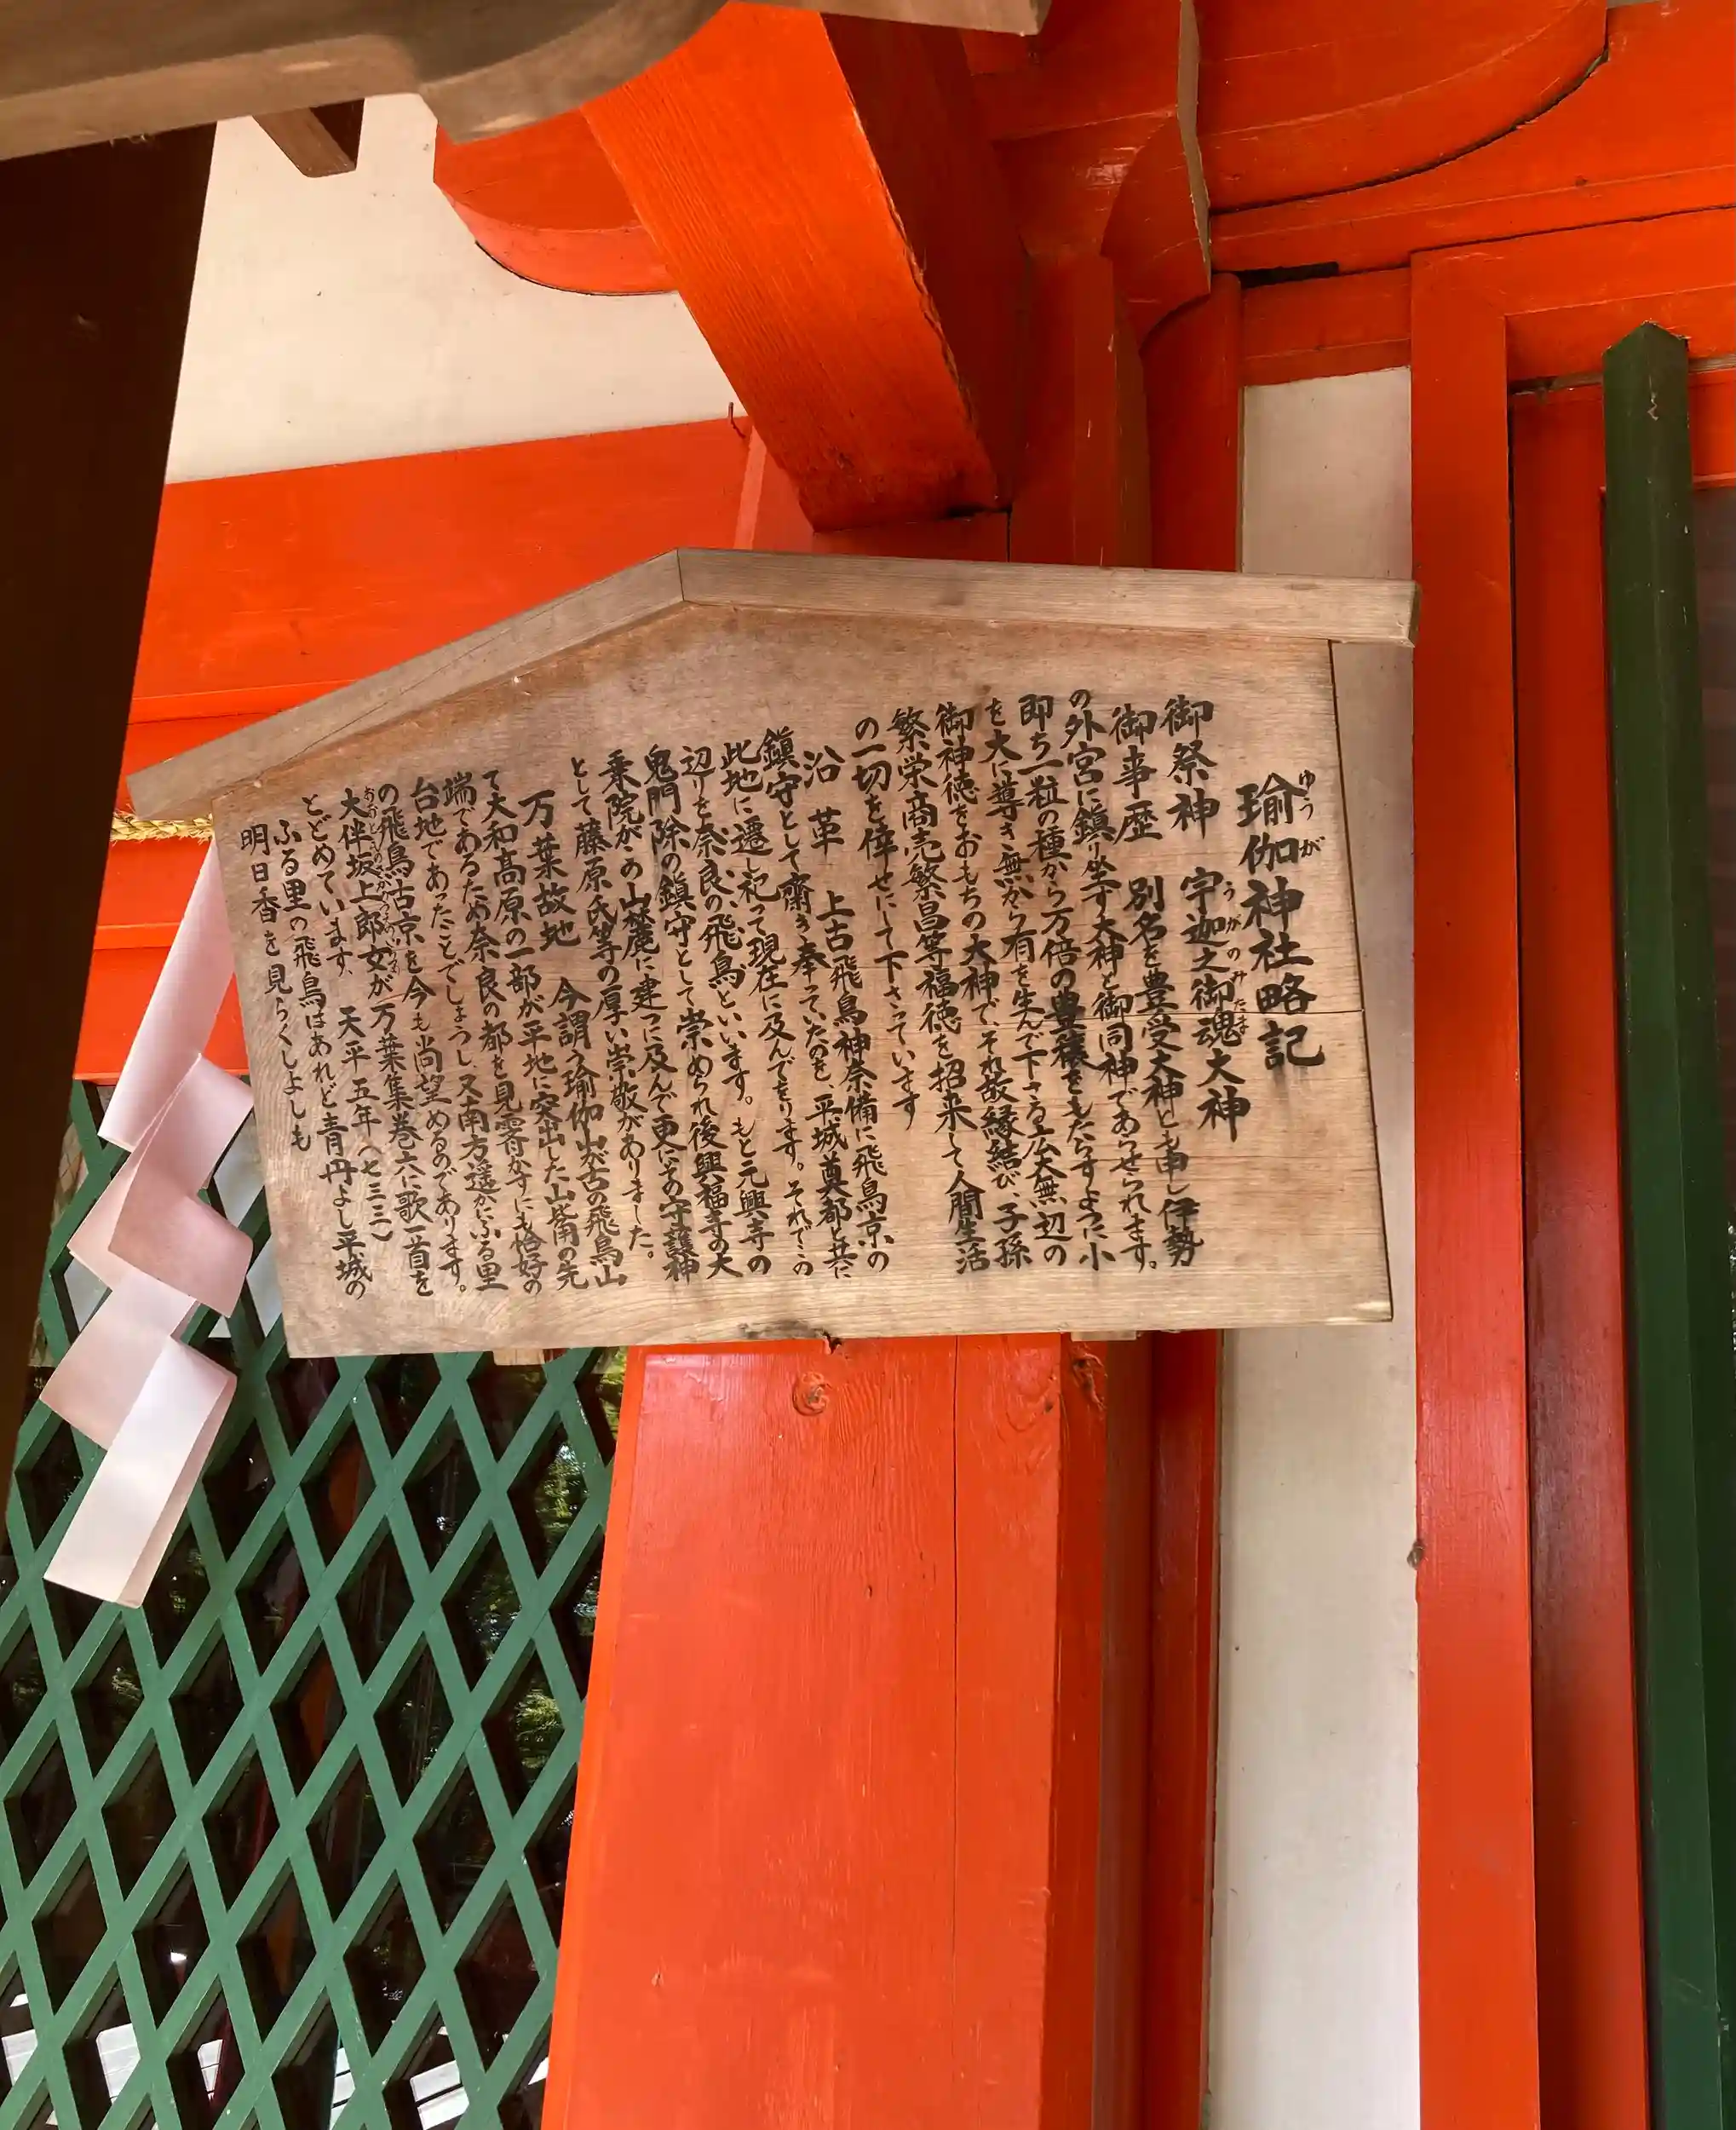 瑜伽神社略記
ゆうが
御祭神 宇迦之御魂大神
うがのみたま
御事歴 別名を豊受大神とも申し伊勢
の外宮に鎮り坐す大神と御同神であらせられます。
即ち一粒の種から万倍の豊穣をもたらすように小
を大に導き無から有を生んで下さる広大無辺の
御神徳をおもちの大神で、それ故縁結び、子孫
繁栄商売繁昌等福徳を招来して人間生活
の一切を倖せにして下さっています
沿革 上古飛鳥神奈備に飛鳥京の
鎮守として齋き奉っていたのを、平城奠都と共に
此地に遷し祀って現在に及んでをります。それでこの
辺りを奈良の飛鳥といいます。もと元興寺の
鬼門除の鎮守として崇められ後興福寺の大
乗院がこの山麓に建つに及んで更にその守護神
として藤原氏等の厚い崇敬がありました。
万葉故地 今謂う瑜伽山が古の飛鳥山
て大和高原の一部が平地に突出した山岬の先
端であるため奈良の都を見霽かすにも恰好の
台地であったことでしょうし、又南方遥かにふる里
の飛鳥古京を今も尚望めるのであります。
大伴坂上郎女が万葉集巻六に歌一首を
とどめています、 天平五年(七三三)
ふる里の飛鳥はあれど青丹よし平城の
明日香を見らくしよしも